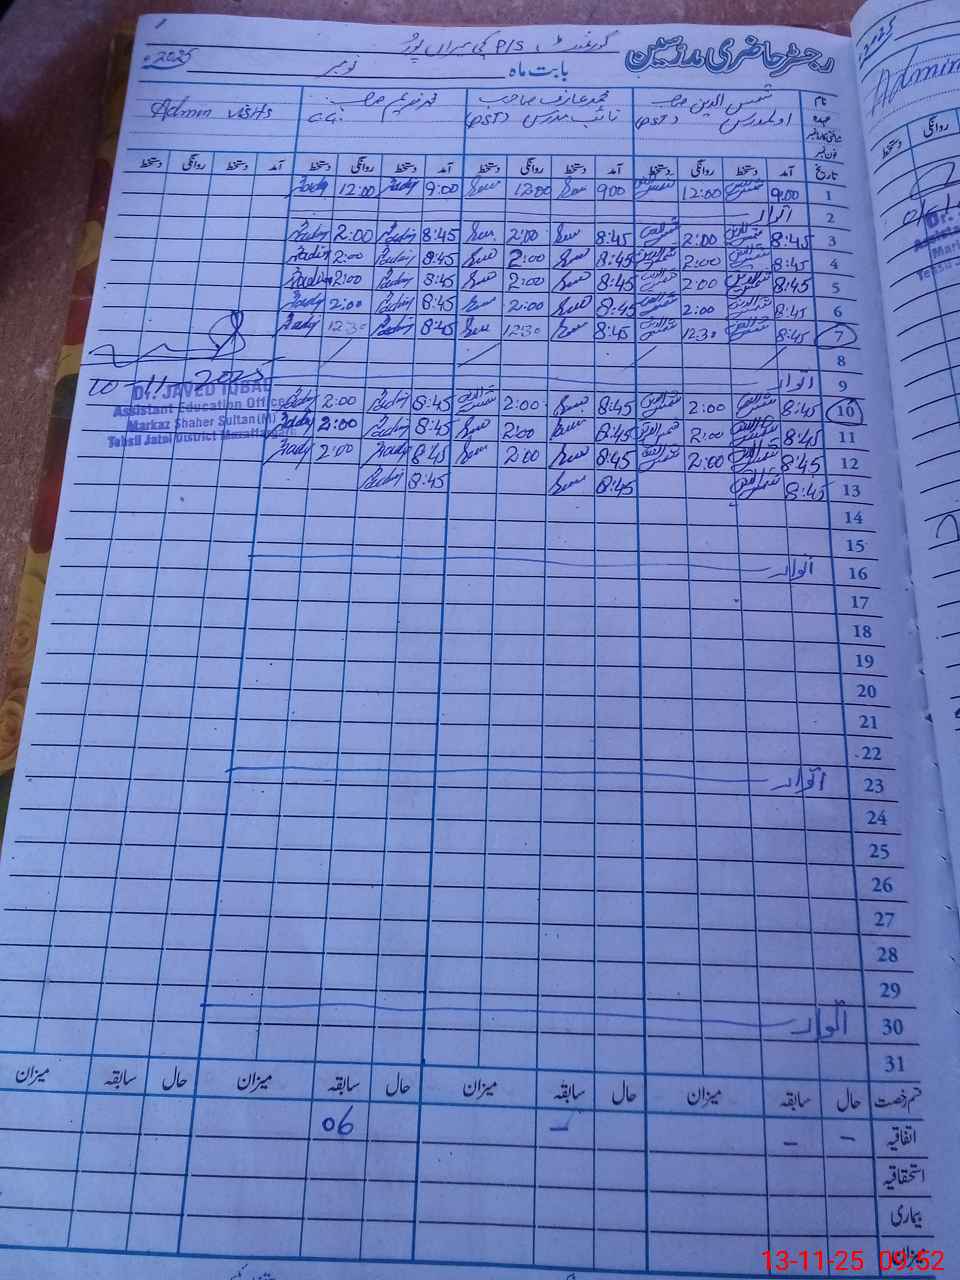 رجسٹر حاضری مدرسین گورنمنٹ P/S کی میراں پور
بابت ماہ نومبر 2025ء
نام شمس الدین صاحب محمد عارف صاحب Admin visits
عہدہ اول مدرس (PST) نائب مدرس (PST)
تاریخ آمد دستخط روانگی دستخط آمد دستخط روانگی دستخط آمد دستخط روانگی دستخط آمد دستخط روانگی دستخط
1 9:00 12:00 9:00 12:00 9:00 12:00
2 اتوار
3 8:45 2:00 8:45 2:00 8:45 2:00
4 8:45 2:00 8:45 2:00 8:45 2:00
5 8:45 2:00 8:45 2:00 8:45 2:00
6 8:45 2:00 8:45 2:00 8:45 2:00
7 8:45 12:30 8:45 12:30 8:45 12:30
8
9 اتوار
10 8:45 2:00 8:45 2:00 8:45 2:00
11 8:45 2:00 8:45 2:00 8:45 2:00
12 8:45 2:00 8:45 2:00 8:45 2:00
13 8:45 8:45 8:45
10-11-2025
Dr. JAVED IQBAL
Assistant Education Officer
Markaz Shaher Sultan (M)
Tehsil Jatoi District Muzaffargarh
14
15
16 اتوار
17
18
19
20
21
22
23 اتوار
24
25
26
27
28
29
30 اتوار
31
قسم رخصت حال سابقہ میزان حال سابقہ میزان حال سابقہ میزان حال سابقہ میزان
اتفاقیہ - - - 06
استحقاقیہ
بیماری
میزان
Admin
Dr.
13-11-25 09:52